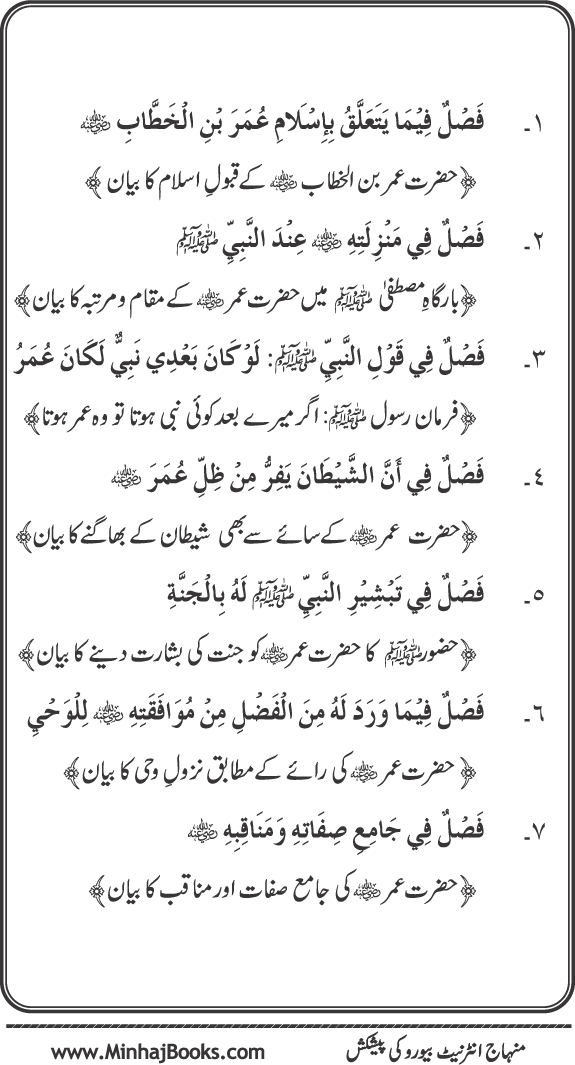 ١۔ فَصْلٌ فِيْمَا يَتَعَلَّقُ بِإِسْلَامِ عُمَرَ بْنِ الْخَطَّابِ رضی اللہ عنہ
﴿حضرت عمر بن الخطاب رضی اللہ عنہ کے قبولِ اسلام کا بیان﴾
٢۔ فَصْلٌ فِي مَنْزِلَتِهِ رضی اللہ عنہ عِنْدَ النَّبِيِّ ﷺ
﴿بارگاہِ مصطفیٰ ﷺ میں حضرت عمر رضی اللہ عنہ کے مقام و مرتبہ کا بیان﴾
٣۔ فَصْلٌ فِي قَوْلِ النَّبِيِّ ﷺ: لَوْ كَانَ بَعْدِي نَبِيٌّ لَكَانَ عُمَرُ
﴿فرمان رسول ﷺ: اگر میرے بعد کوئی نبی ہوتا تو وہ عمر ہوتا﴾
٤۔ فَصْلٌ فِي أَنَّ الشَّيْطَانَ يَفِرُّ مِنْ ظِلِّ عُمَرَ رضی اللہ عنہ
﴿حضرت عمر رضی اللہ عنہ کے سائے سے بھی شیطان کے بھاگنے کا بیان﴾
٥۔ فَصْلٌ فِي تَبْشِيْرِ النَّبِيِّ ﷺ لَهُ بِالْجَنَّةِ
﴿حضور ﷺ کا حضرت عمر رضی اللہ عنہ کو جنت کی بشارت دینے کا بیان﴾
٦۔ فَصْلٌ فِيْمَا وَرَدَ لَهُ مِنَ الْفَضْلِ مِنْ مُوَافَقَتِهِ رضی اللہ عنہ لِلْوَحْيِ
﴿حضرت عمر رضی اللہ عنہ کی رائے کے مطابق نزولِ وحی کا بیان﴾
٧۔ فَصْلٌ فِي جَامِعِ صِفَاتِهِ وَمَنَاقِبِهِ رضی اللہ عنہ
﴿حضرت عمر رضی اللہ عنہ کی جامع صفات اور مناقب کا بیان﴾
منہاج انٹرنیٹ بیورو کی پیشکش www.MinhajBooks.com